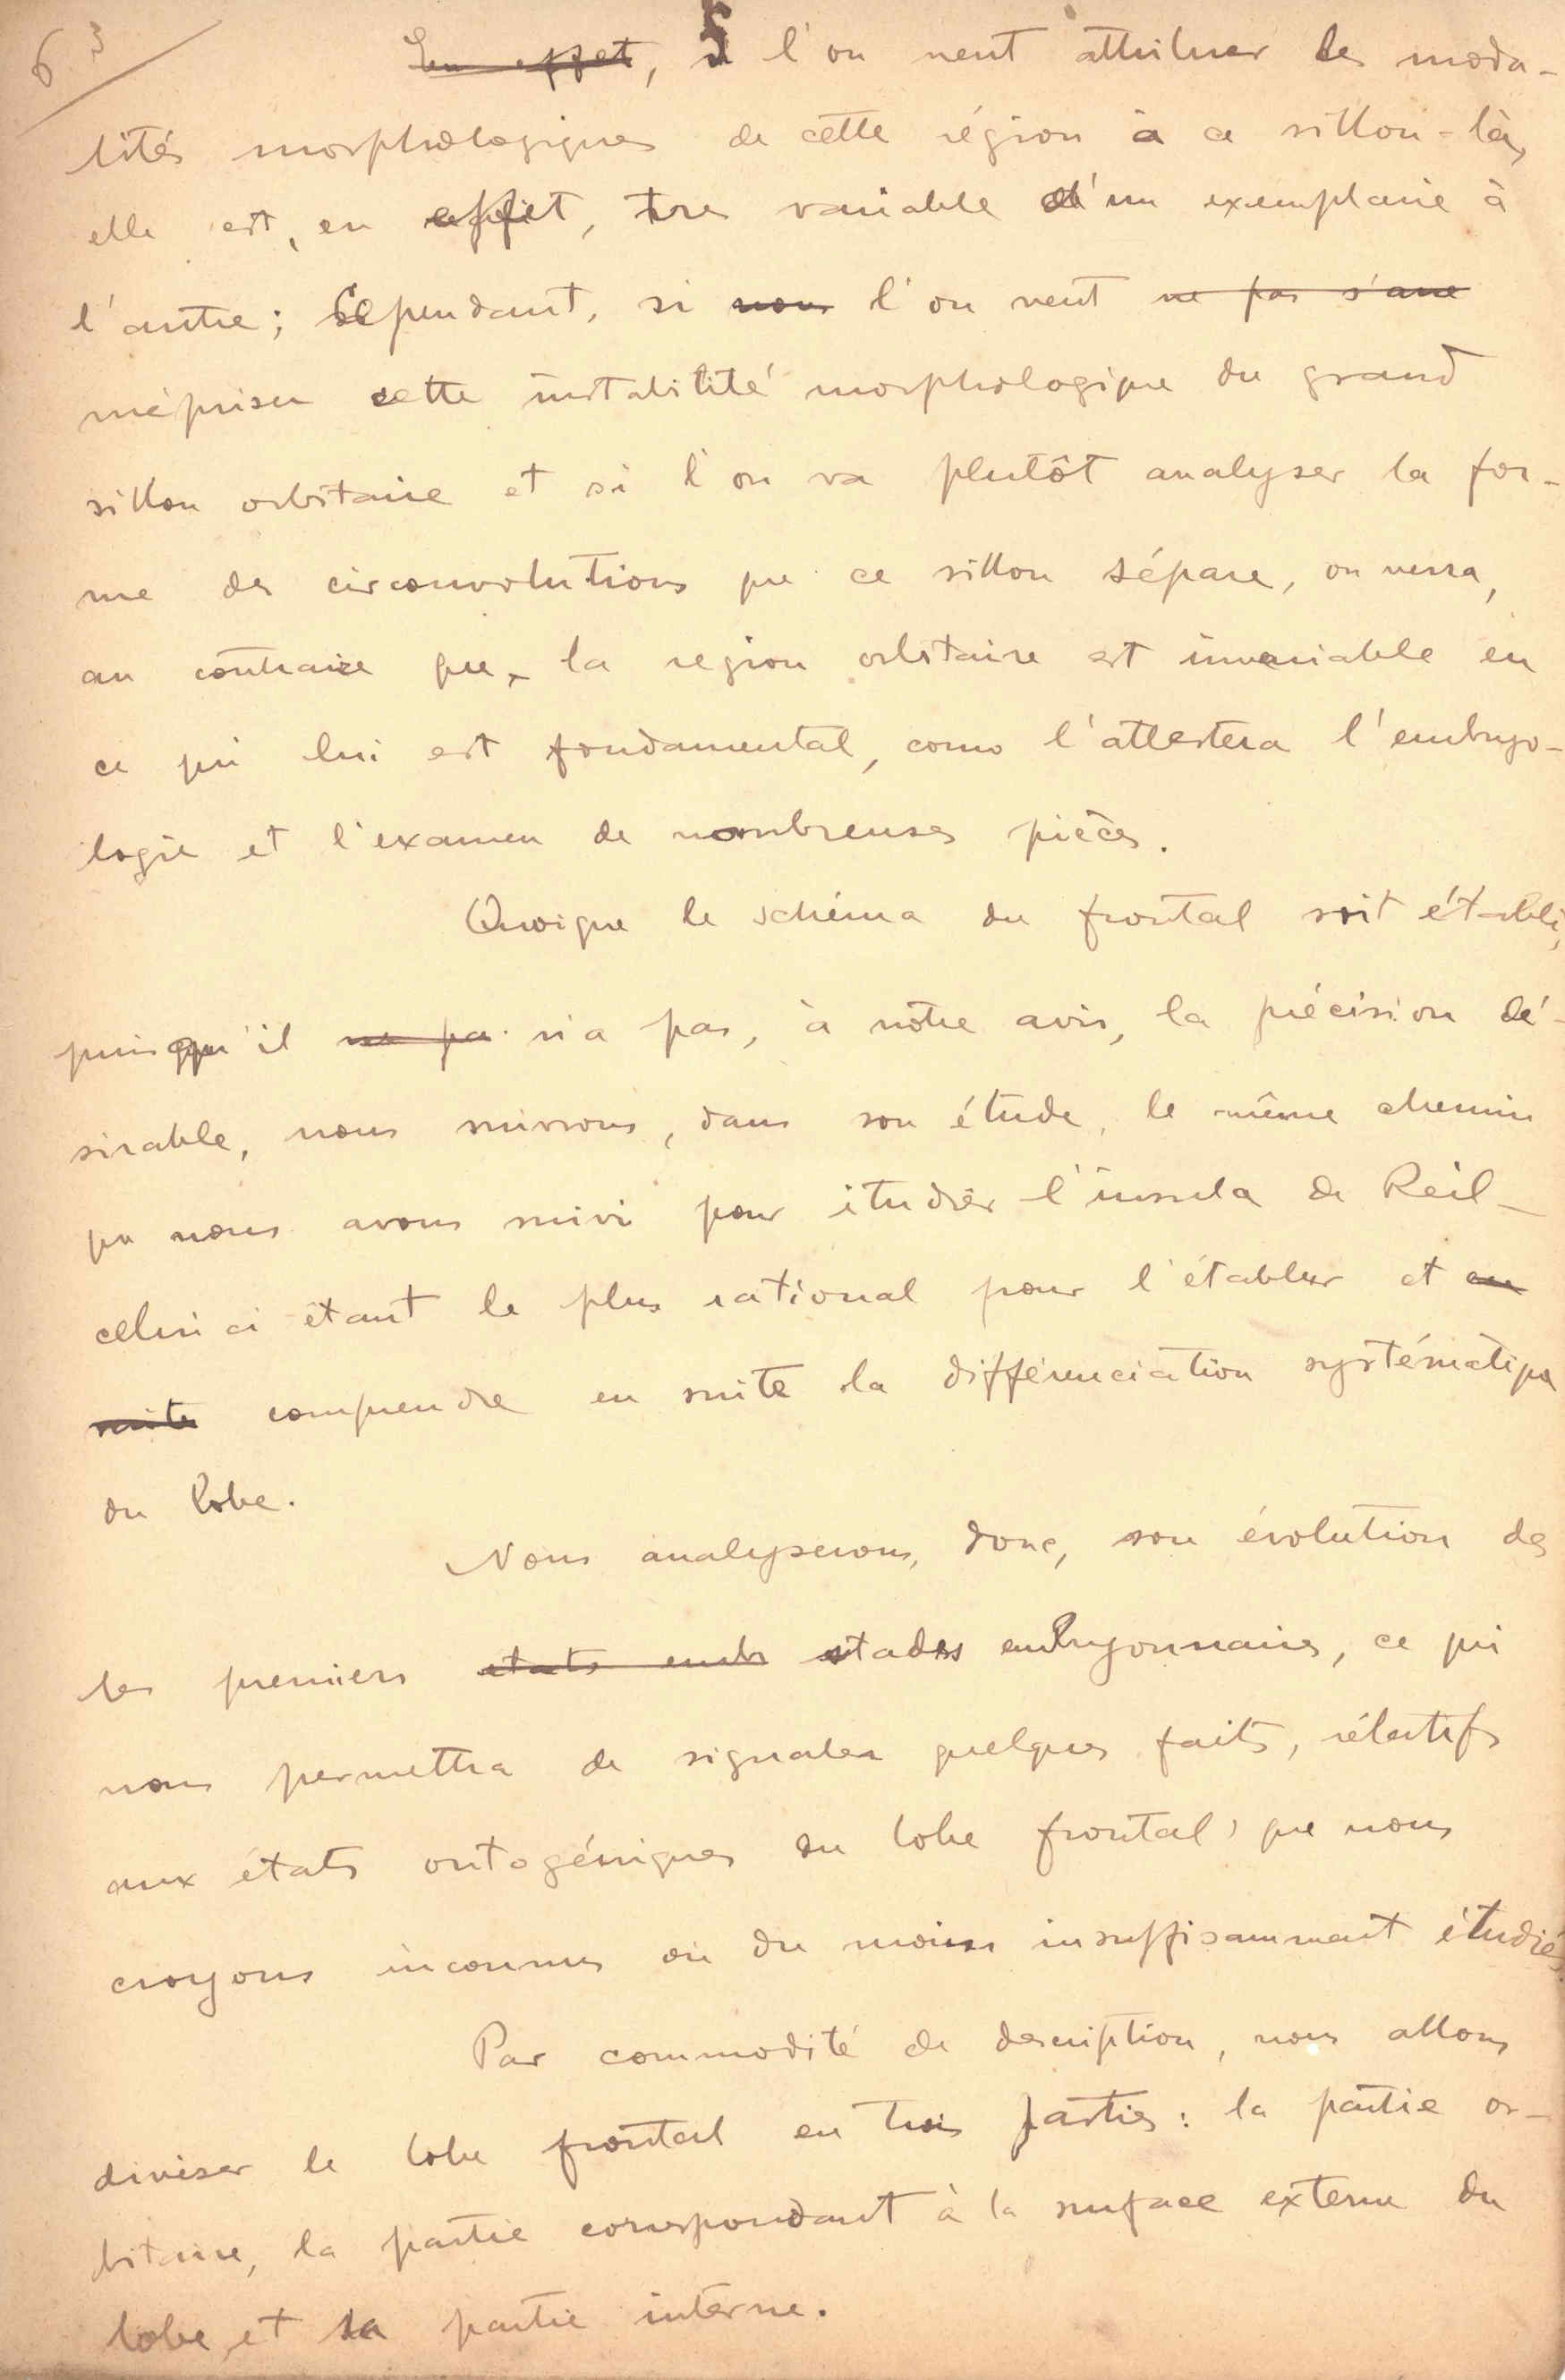 63
En effet, Si l'on veut attribuer les moda-
lités morphologiques de cette région à ce sillon-là,
elle est, en effet, tres variable d'un exemplaire à
l'autre; Cependant, si nous l'on veut ne pas s'arre
mépriser cette instabilité morphologique du grand
sillon orbitaire et si l'on va plutôt analyser la for-
me des circonvolutions que ce sillon sépare, on verra,
au contraire que, la region orbitaire est invariable en
ce qui lui est fondamental, como l'attestera l'embryo-
logie et l'examen de nombreuses pièces.
Quoique le schéma du frontal soit établi,
puisqu'il ne pa n'a pas, à nôtre avis, la précision dé-
sirable, nous suivrons, dans son étude, le même chemin
que nous avons suivi pour étudier l'insula de Reil-
celui ci étant le plus rational pour l'établir et en
suite comprendre en suite la différenciation systématique
du lobe.
Nous analyserons, donc, son évolution des
les premiers etats emb stades embryonnaires, ce qui
nous permettra de signaler quelques faits, rélatifs
aux états ontogéniques du lobe frontal, que nous
croyons inconnus ou du moins insuffisamment étudiés.
Par commodité de description, nous allons
diviser le lobe frontal en trois parties: la partie or-
bitaire, la partie correspondant à la surface externe du
lobe et la partie interne.